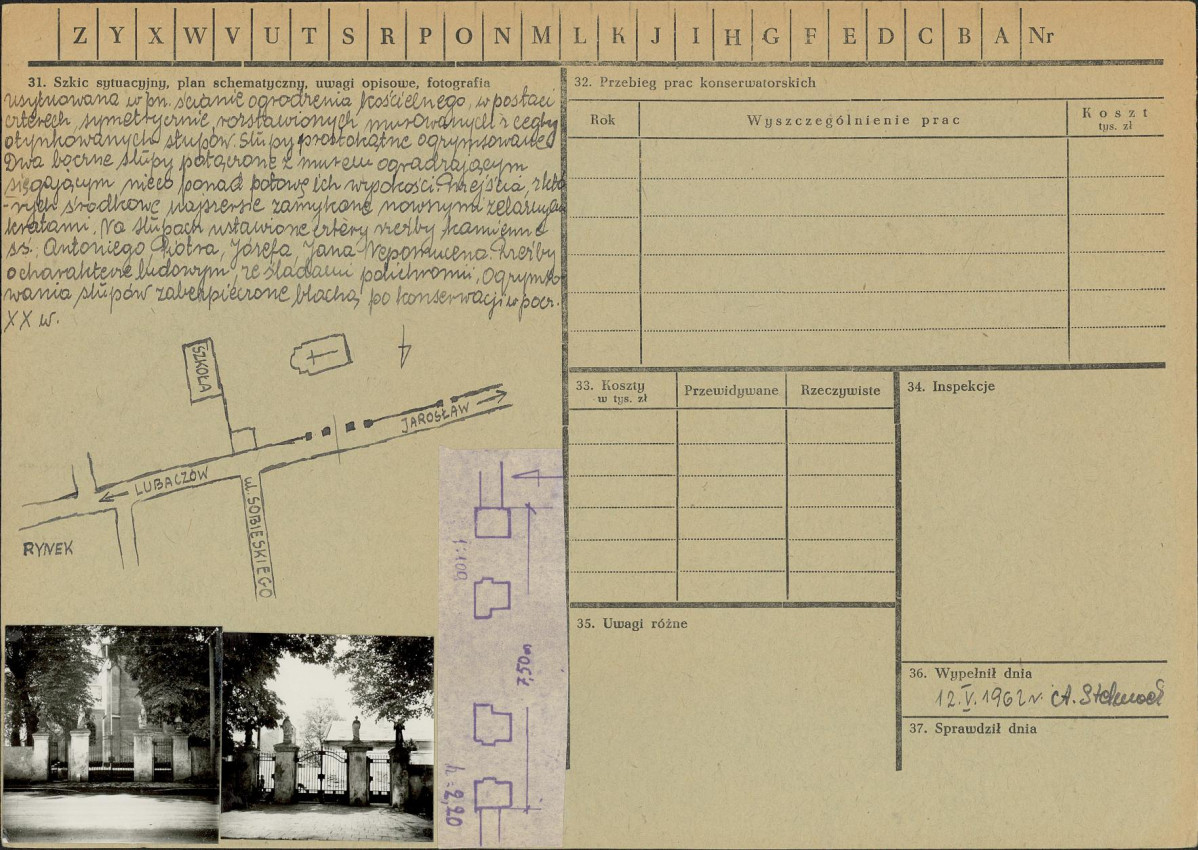 Z Y X W V U T S R P O N M L K J I H G F E D C B A Nr
31. Szkic sytuacyjny, plan schematyczny, uwagi opisowe, fotografia
usytuowana w pn. ścianie ogrodzenia kościelnego, w postaci
czterech, symetrycznie rozstawionych murowanych z cegły
otynkowanych słupów. Słupy prostokątne ogzymsowane.
Dwa boczne słupy połączone z murem ogradzającym
sięgającym nieco ponad połowę ich wysokości. Przejścia, z któ
-rych środkowe najszersze zamykane nowszymi żelaznymi
kratami. Na słupach ustawione cztery rzeźby kamienne
śś. Antoniego Piotra, Józefa, Jana Nepomucena. Rzeźby
o charakterze ludowym, ze śladami polichromii. Ogzymso-
wania słupów zabezpieczone blachą, po konserwacji w pocz.
XX w.
SZKOŁA
JAROSŁAW
LUBACZÓW
ul. SOBIESKIEGO
RYNEK
1:100
7,50m
h=2,20
32. Przebieg prac konserwatorskich
Rok
Wyszczególnienie prac
Koszt
tys. zł
33. Koszty
w tys. zł
Przewidywane
Rzeczywiste
34. Inspekcje
35. Uwagi różne
36. Wypełnił dnia
12.V.1962 r. A.
37. Sprawdził dnia